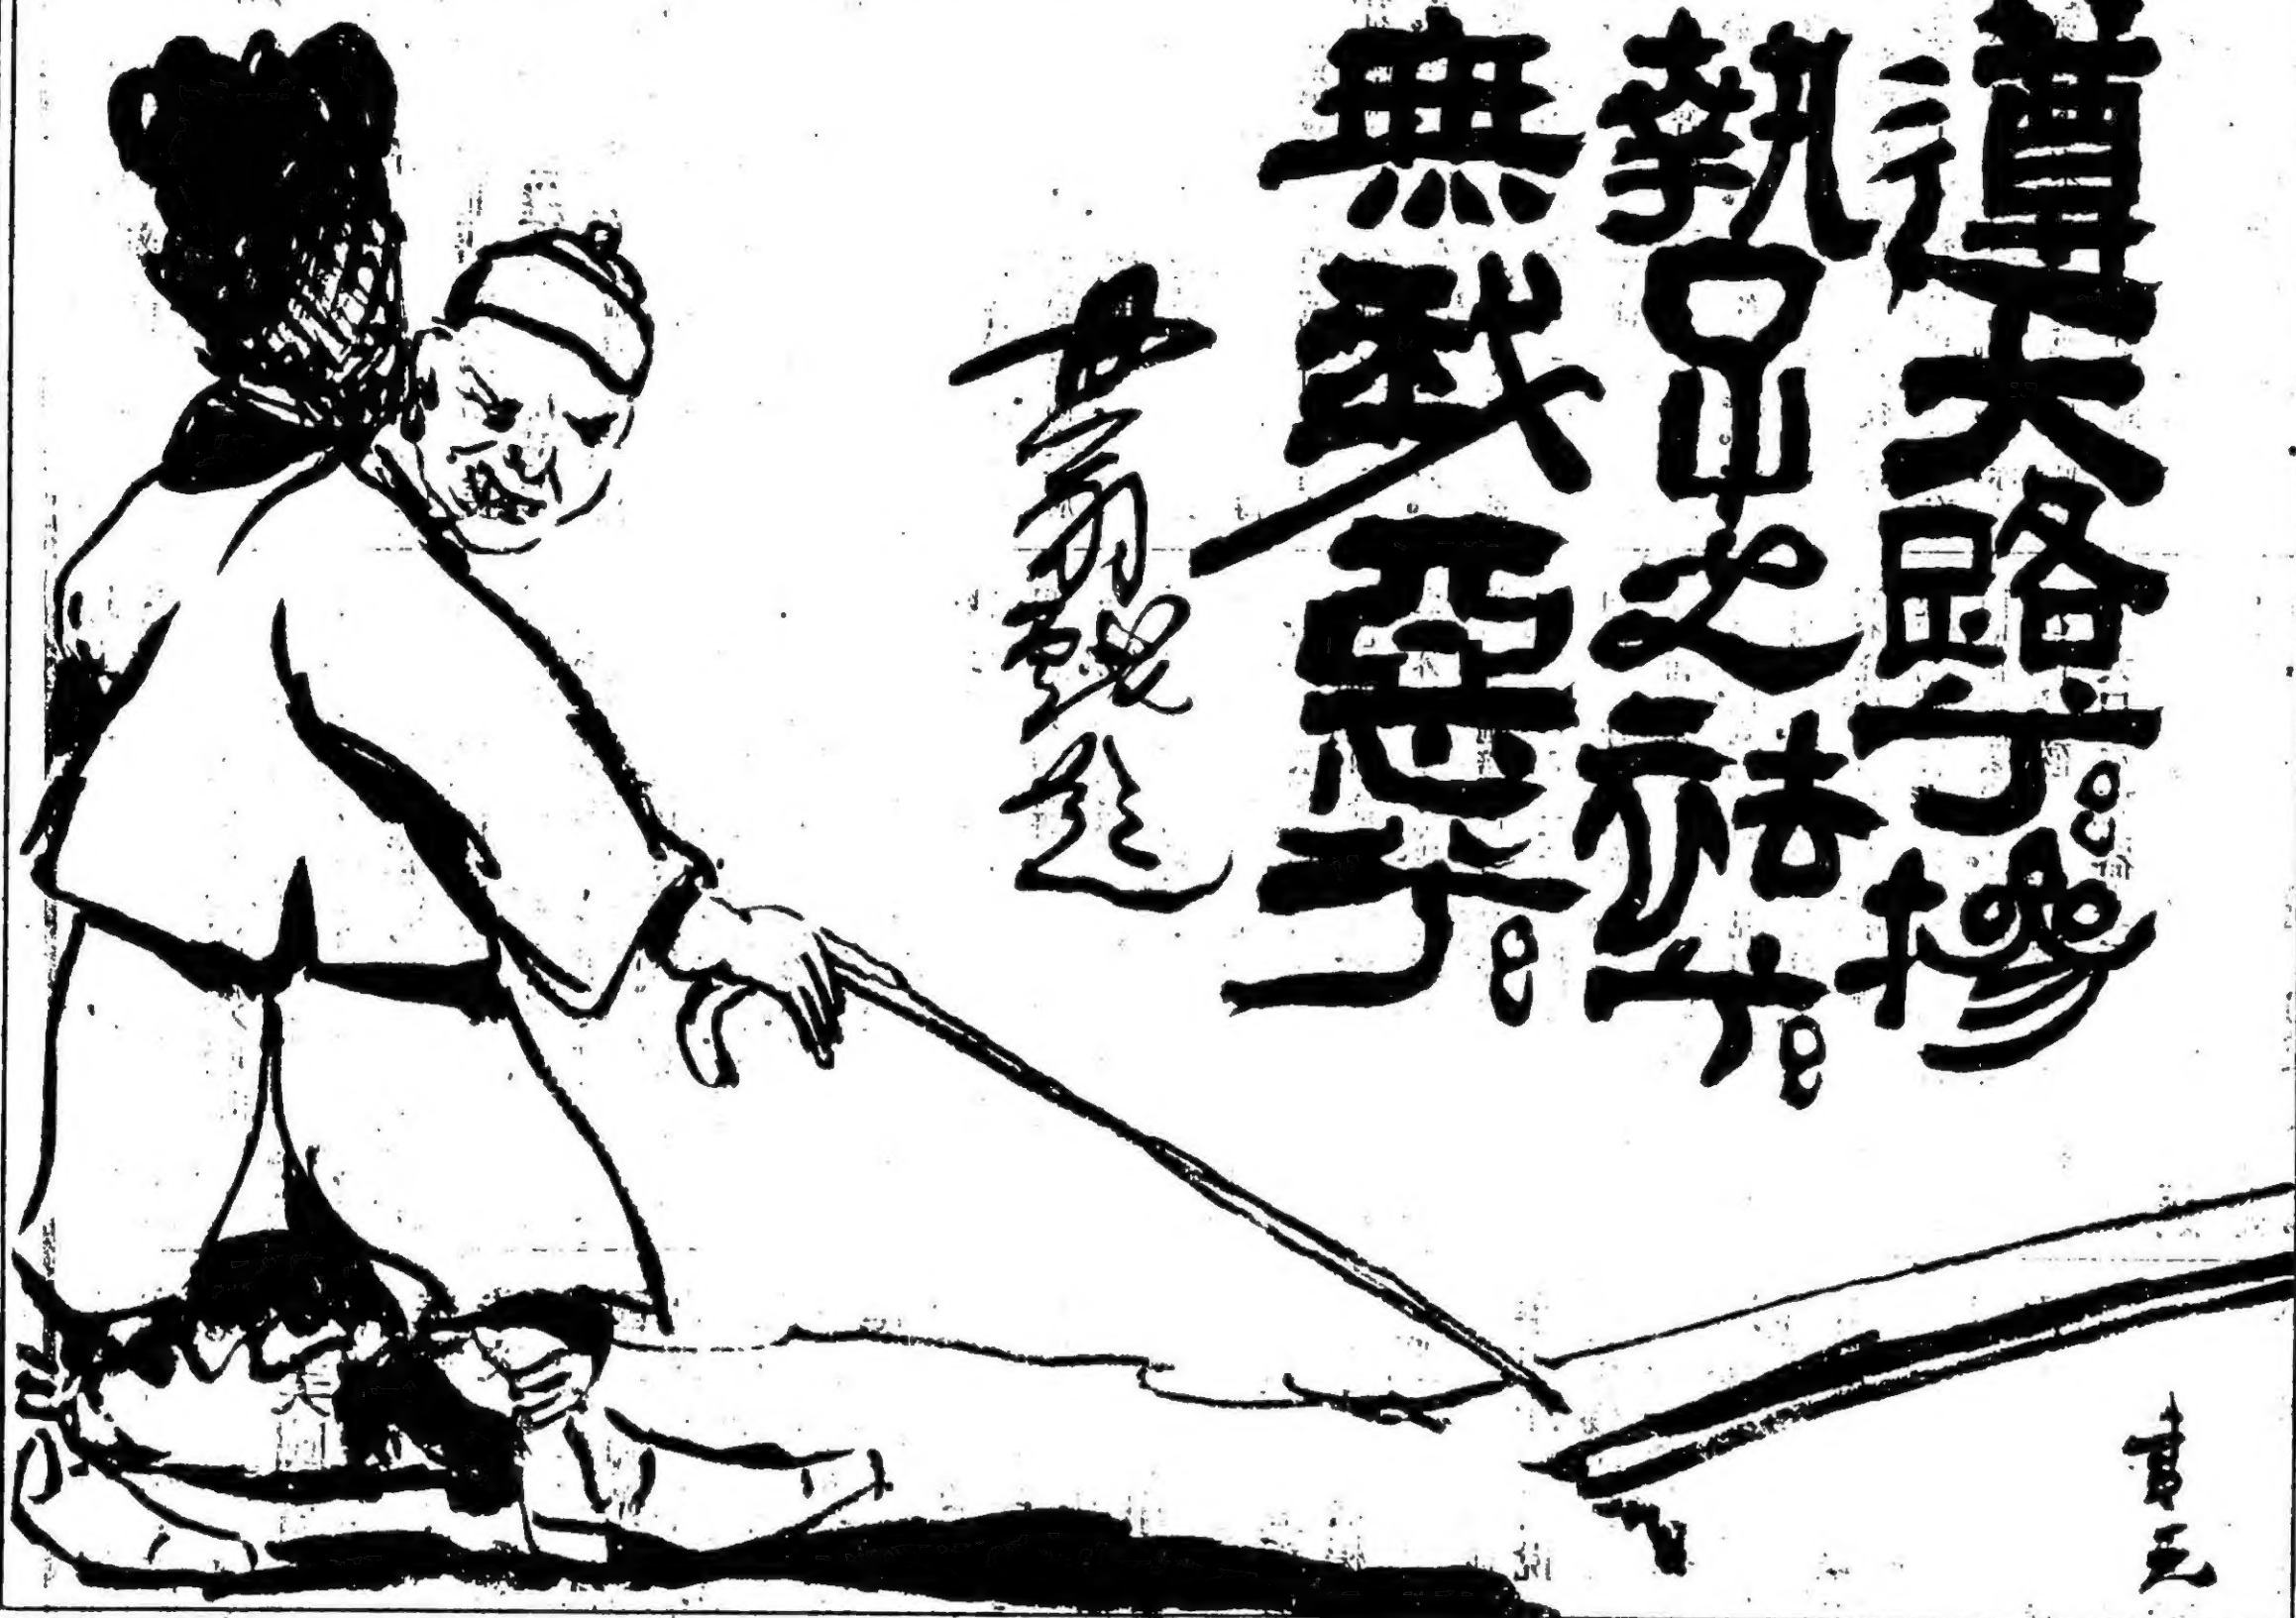 遵大路兮。摻
執子之袪兮。
無我惡兮。
翁戲題